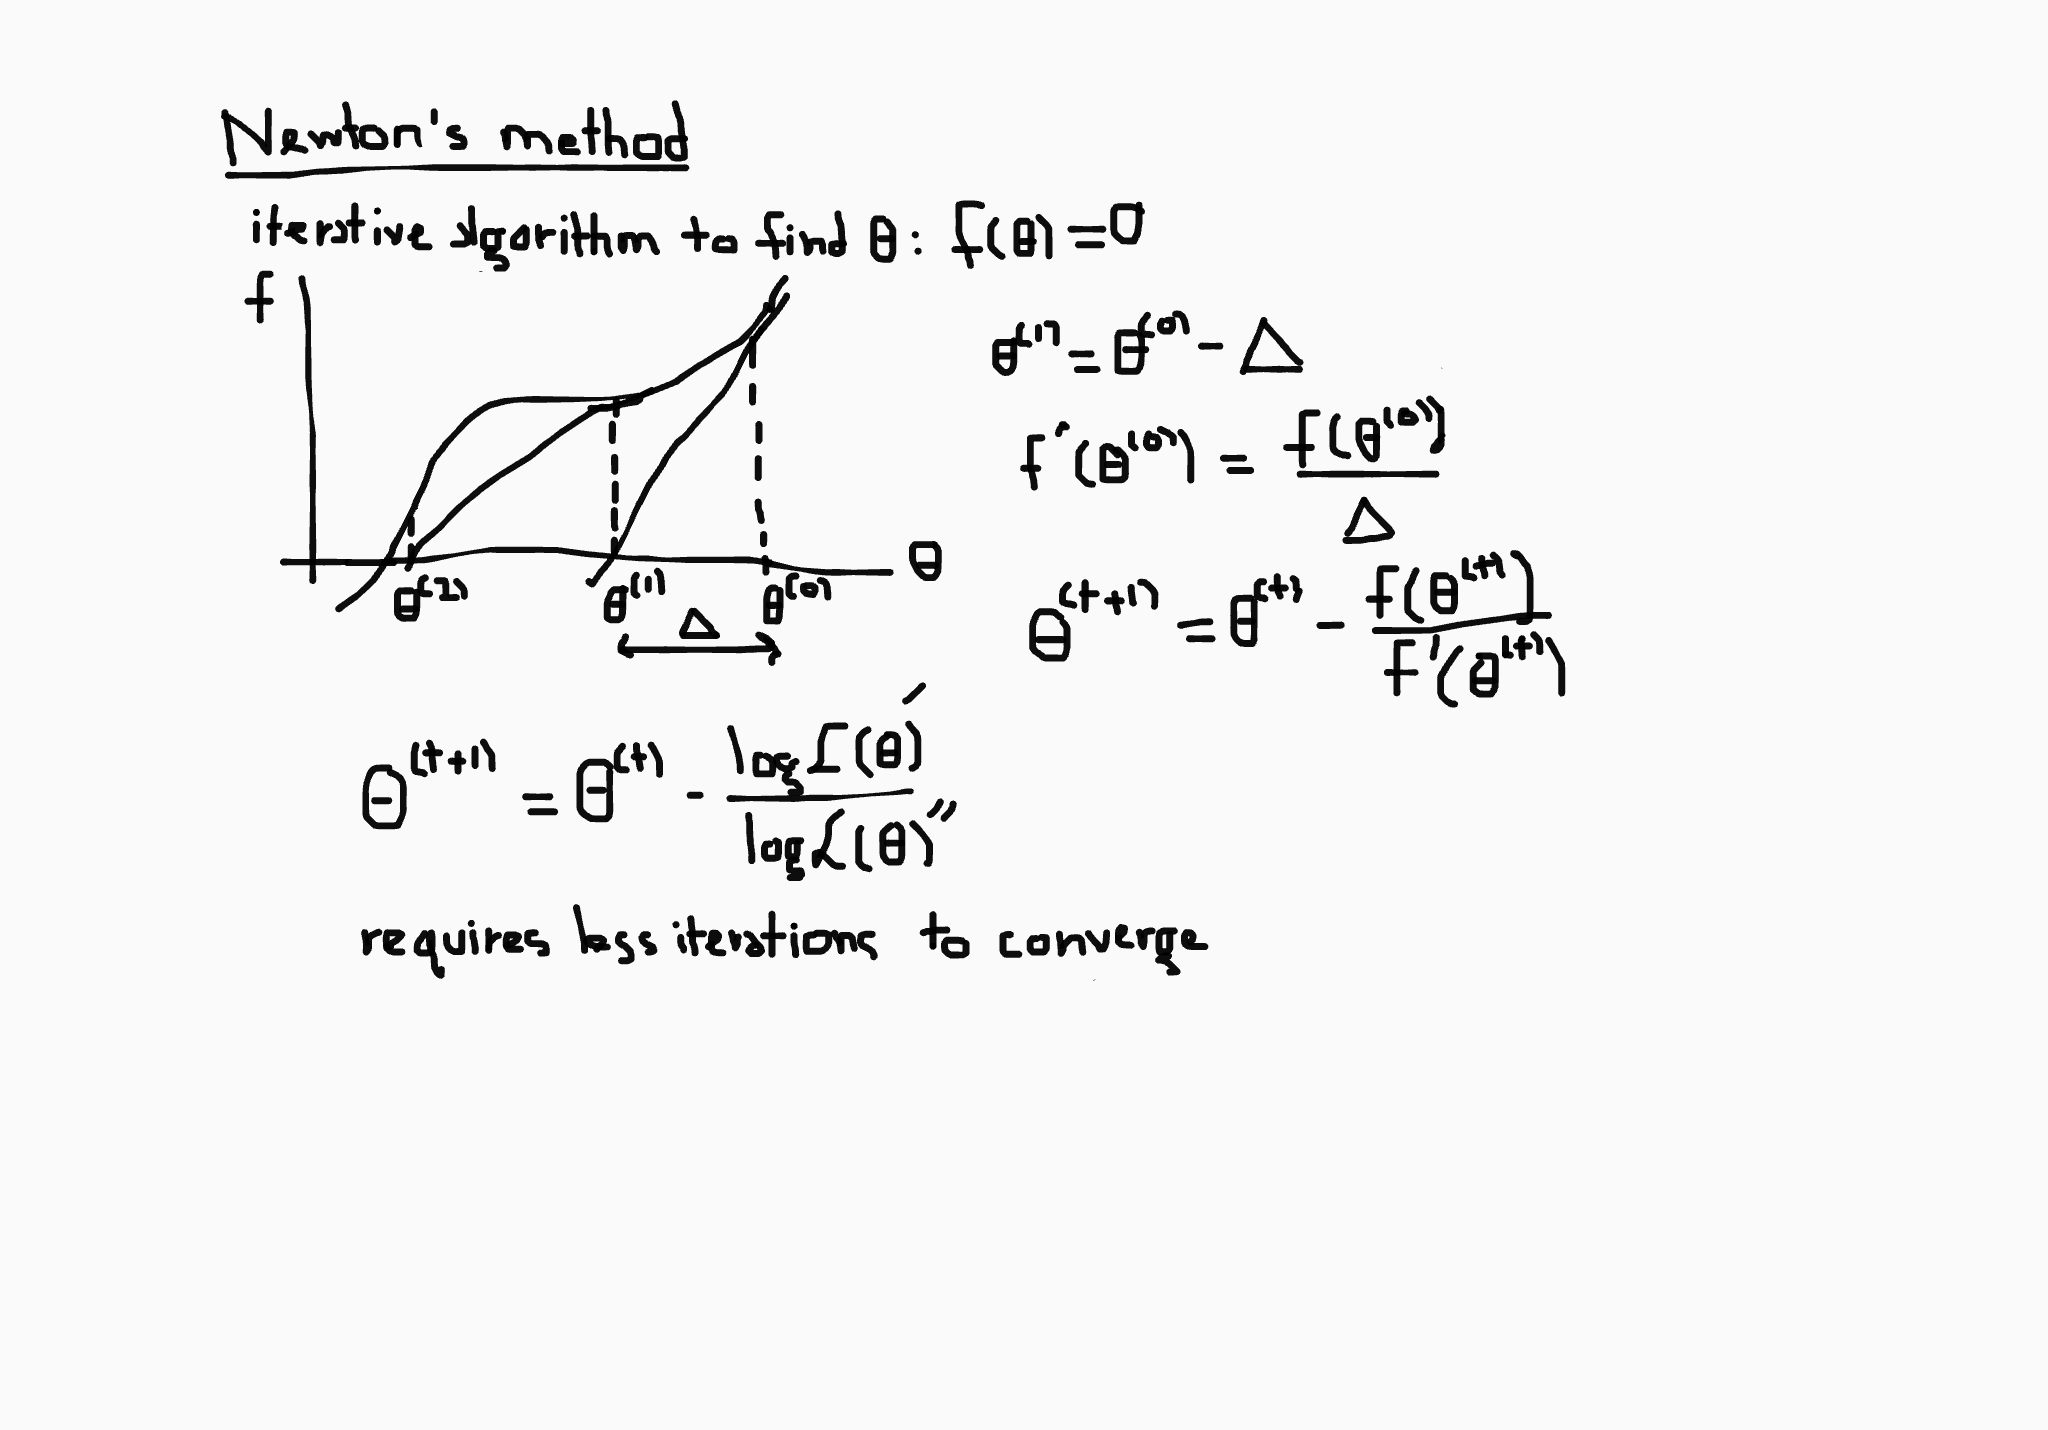 Newton's method
iterative algorithm to find θ: f(θ) = 0
f
θ
θ^(2) θ^(1) θ^(0)
Δ
θ^(1) = θ^(0) - Δ
f'(θ^(0)) = f(θ^(0)) / Δ
θ^(t+1) = θ^(t) - f(θ^(t)) / f'(θ^(t))
θ^(t+1) = θ^(t) - log L(θ)' / log L(θ)''
requires less iterations to converge